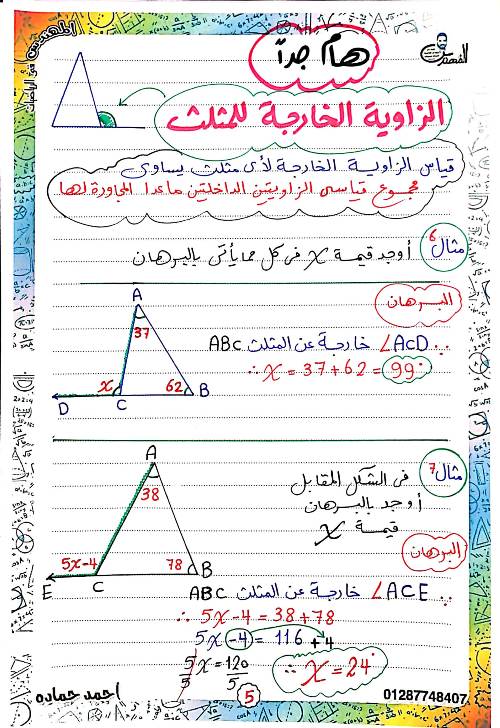 المهندس فى الرياضيات
المهندس
هام جداً
الزاوية الخارجة للمثلث
قياس الزاوية الخارجة لأى مثلث يساوى
مجموع قياسى الزاويتين الداخلتين ماعدا المجاورة لها
مثال 6
أوجد قيمة x فى كل مما يأتى بالبرهان
A
37
x
62
D
C
B
البرهان
∵ ∠ACD خارجة عن المثلث ABC
∴ x = 37 + 62 = 99°
مثال 7
فى الشكل المقابل
أوجد بالبرهان
قيمة x
A
38
5x-4
78
E
C
B
البرهان
∵ ∠ACE خارجة عن المثلث ABC
∴ 5x - 4 = 38 + 78
5x - 4 = 116 + 4
5x/5 = 120/5
∴ x = 24°
احمد حماده
5
01287748407